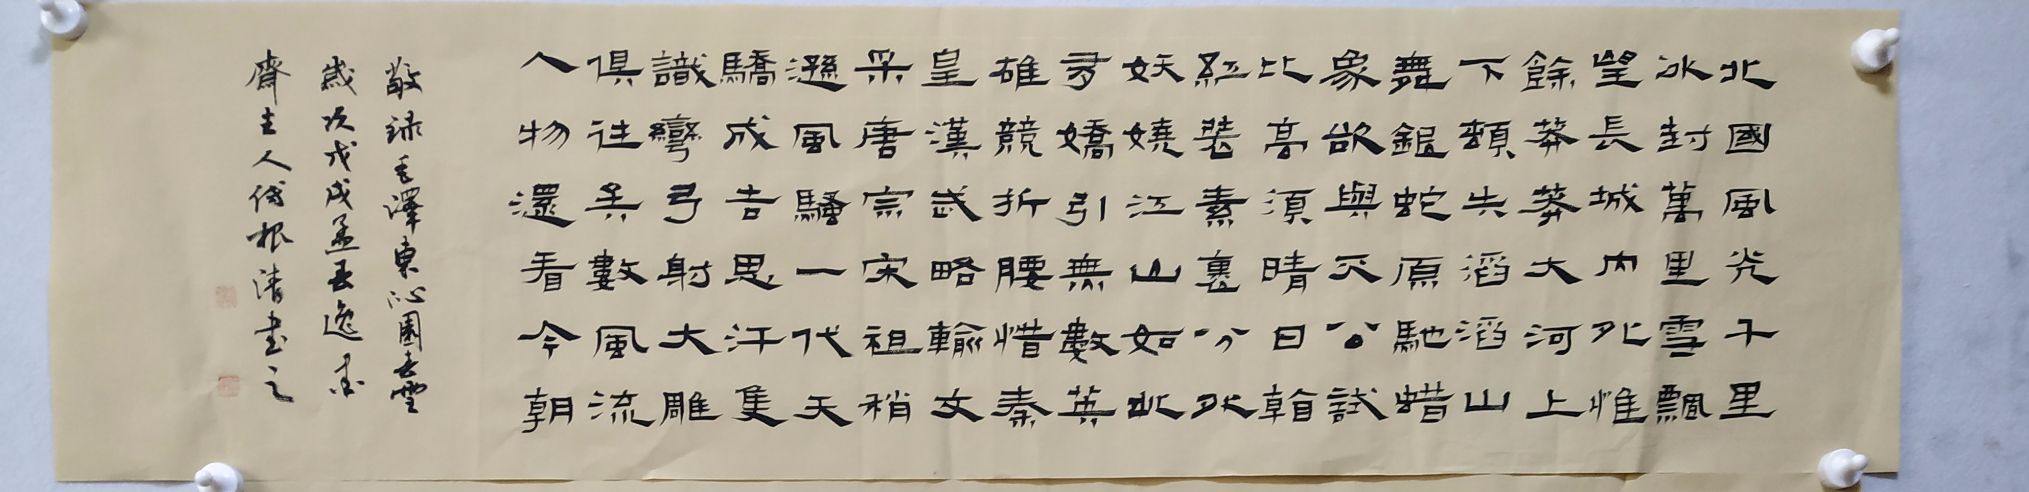 北國風光千里
冰封萬里雪飄
望長城內外惟
餘莽莽大河上
下頓失滔滔山
舞銀蛇原馳蜡
象欲與天公試
比高須晴日看
紅裝素裹分外
妖嬈江山如此
多嬌引無數英
雄競折腰惜秦
皇漢武略輸文
采唐宗宋祖稍
遜風騷一代天
驕成吉思汗隻
識彎弓射大雕
俱往矣數風流
人物還看今朝
敬録毛澤東沁園春雪
歲次戊戌孟春逸
齋主人傅根清書之